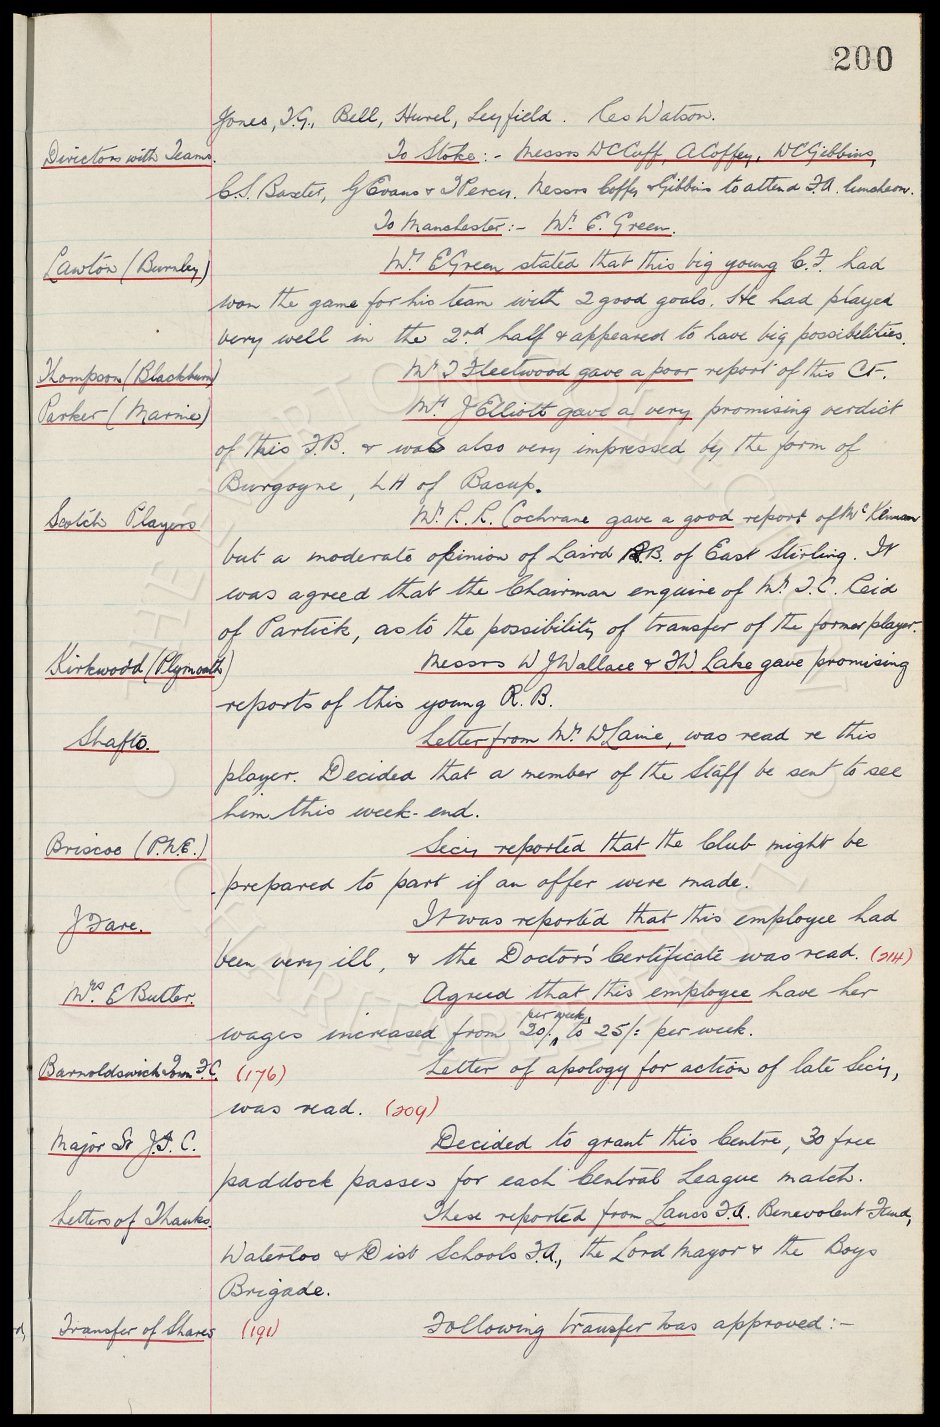 200
Jones, T.G., Bell, Hurel, Leyfield. Res Watson.
Directors with Teams. To Stoke:- Messrs W C Cuff, A Coffey, W C Gibbins,
C.S. Baxter, G Evans & T Percy. Messrs Coffey & Gibbins to attend F.A. luncheon.
To Manchester:- Mr. E. Green.
Lawton (Burnley) Mr. E Green stated that this big young C.F. had
won the game for his team with 2 good goals. He had played
very well in the 2nd half & appeared to have big possibilities.
Thompson (Blackburn) Mr T Fleetwood gave a poor report of this CF.
Parker (Marine) Mr. J Elliott gave a very promising verdict
of this F.B. & was also very impressed by the form of
Burgoyne, LH of Bacup.
Scotch Players Mr. R. R. Cochrane gave a good report of McKlinnan
but a moderate opinion of Laird R.B. of East Stirling. It
was agreed that the Chairman enquire of Mr. T. C. Reid
of Partick, as to the possibility of transfer of the former player.
Kirkwood (Plymouth) Messrs W J Wallace & F W Lake gave promising
reports of this young R.B.
Shafto. Letter from Mr. W Laine, was read re this
player. Decided that a member of the Staff be sent to see
him this week-end.
Briscoe (P.N.E.) Secy reported that the Club might be
prepared to part if an offer were made.
J Fare. It was reported that this employee had
been very ill, & the Doctor's Certificate was read. (214)
Mrs. E Butler. Agreed that this employee have her
wages increased from 20/- per week, to 25/: per week.
Barnoldswick Town F.C. (176) Letter of apology for action of late Secy,
was read. (209)
Major St J.I.C. Decided to grant this Centre, 30 free
paddock passes for each Central League match.
Letters of Thanks. These reported from Lancs F.A. Benevolent Fund,
Waterloo & Dist Schools F.A., the Lord Mayor & the Boys
Brigade.
Transfer of Shares (191) Following transfer was approved:-